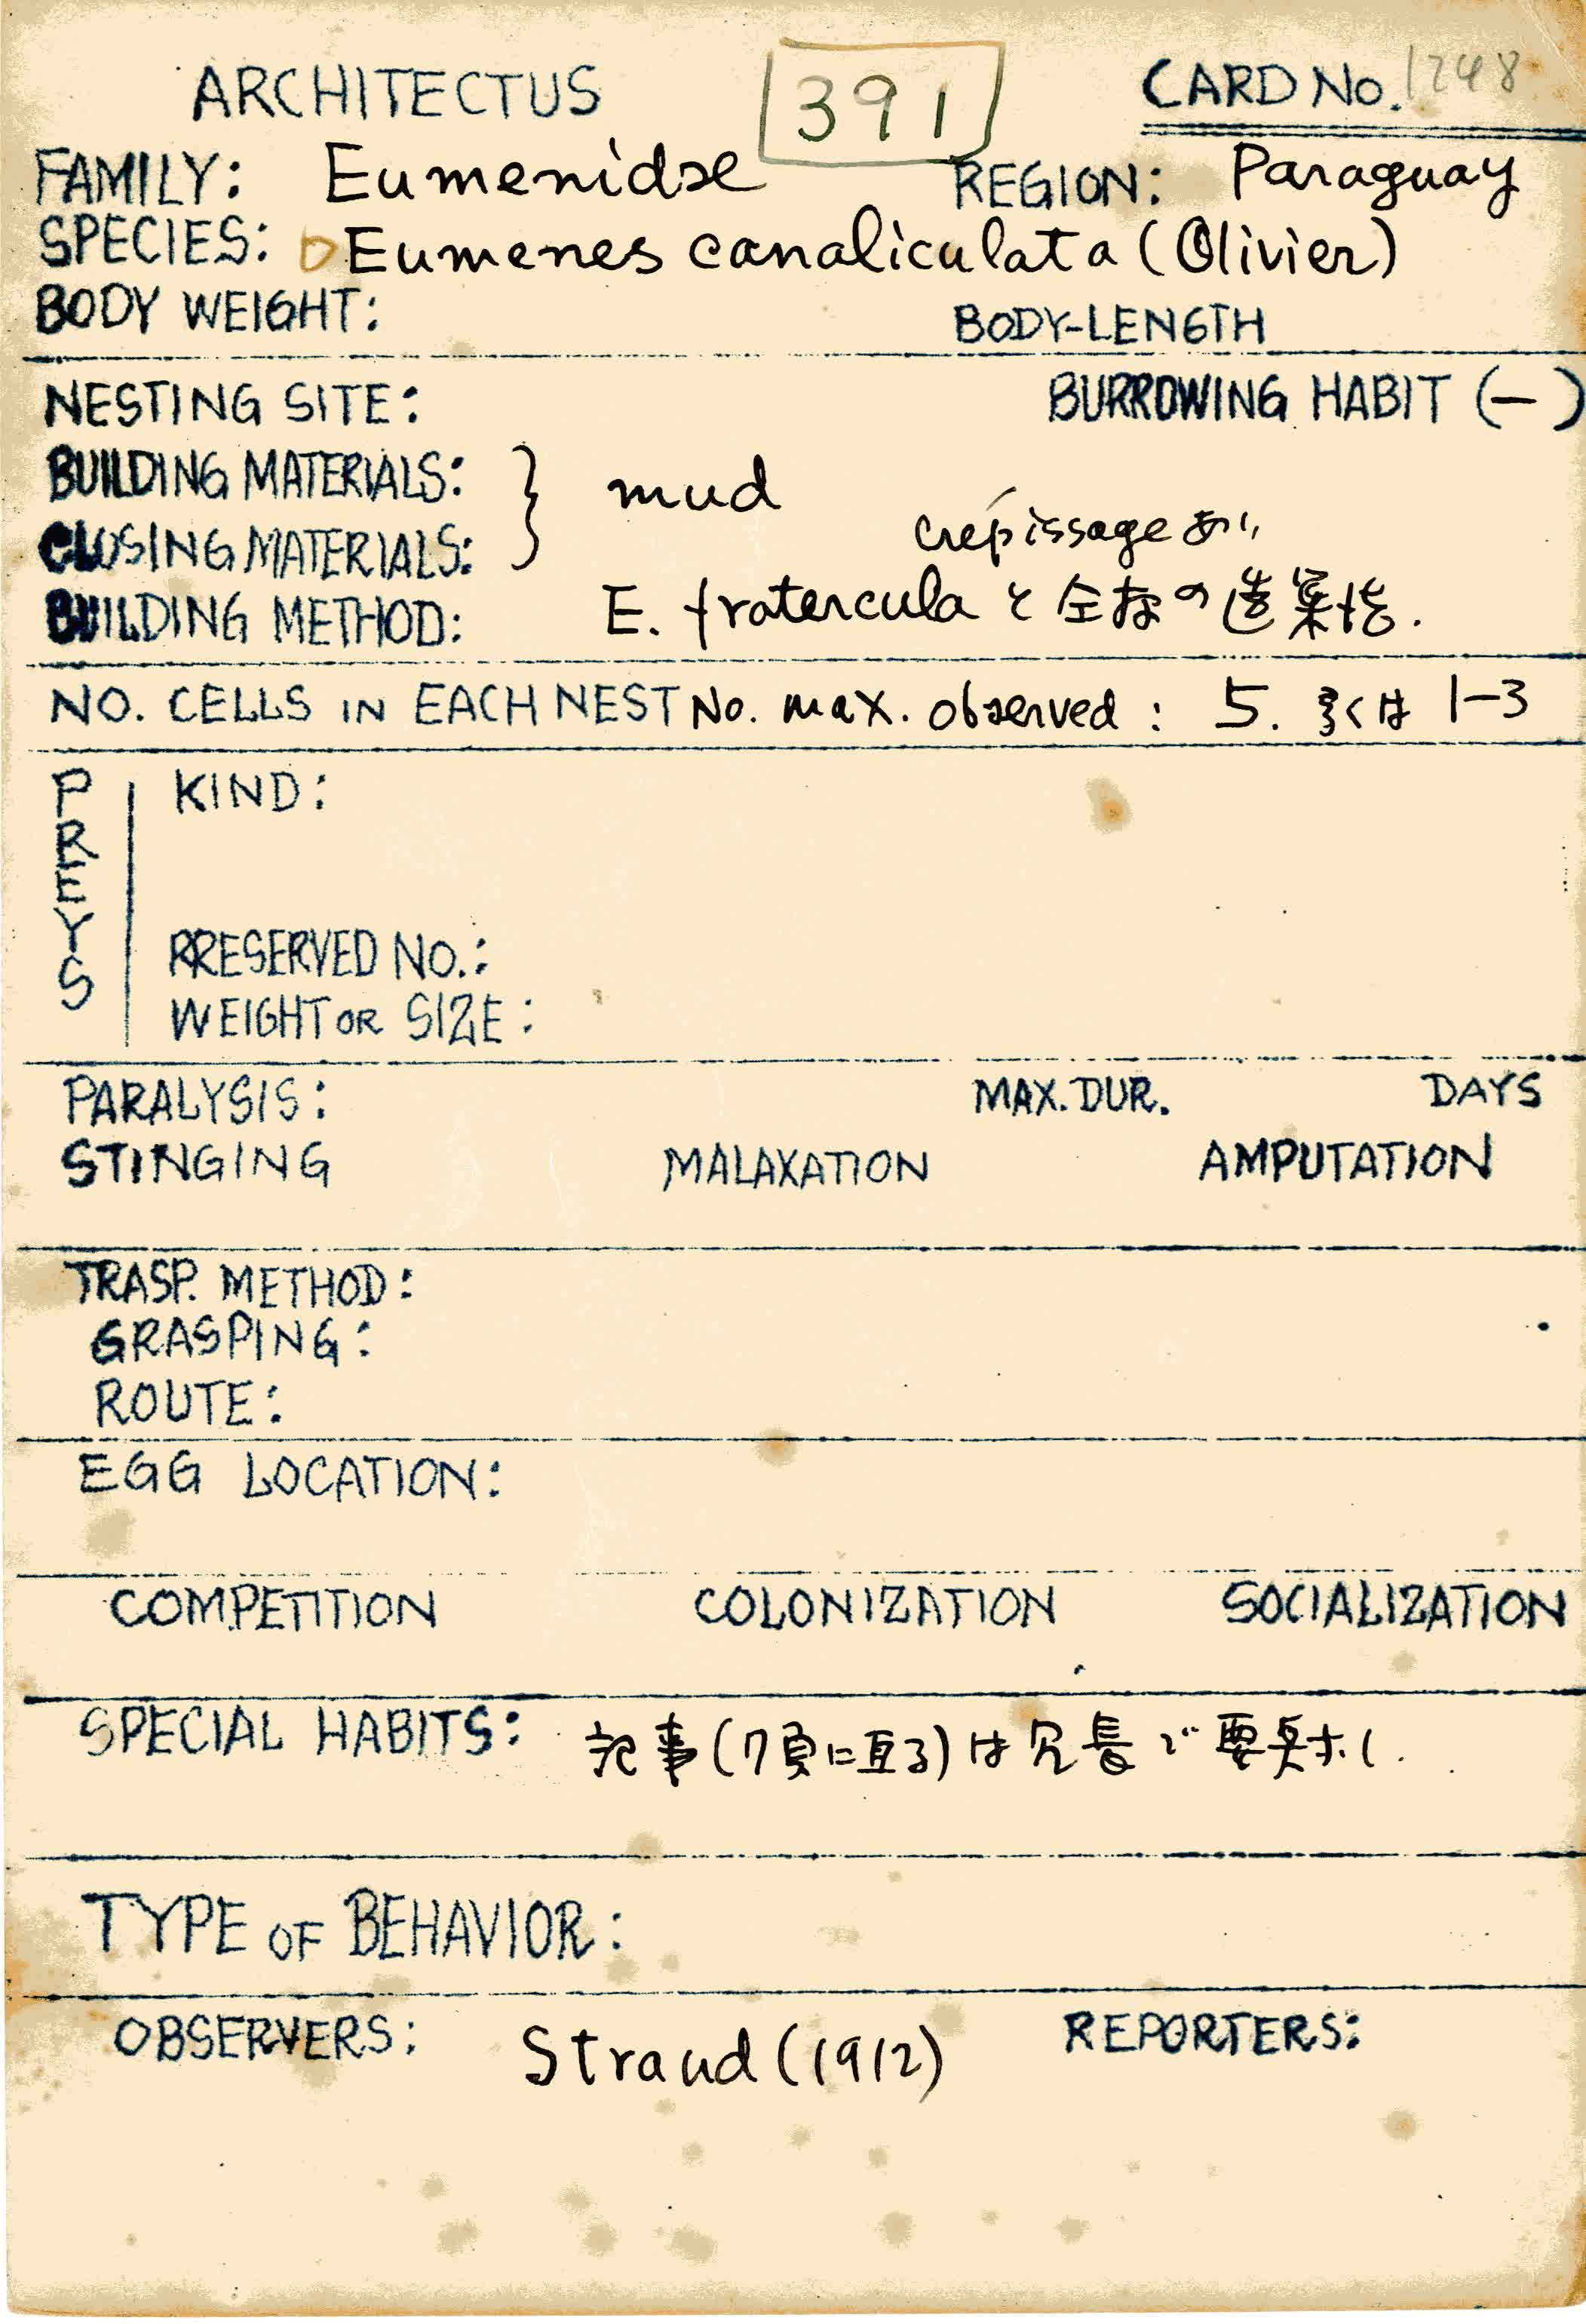 ARCHITECTUS 391 CARD No. 1248
FAMILY: Eumenidae REGION: Paraguay
SPECIES: Eumenes canaliculata (Olivier)
BODY WEIGHT: BODY-LENGTH
NESTING SITE: BURROWING HABIT (-)
BUILDING MATERIALS: } mud
CLOSING MATERIALS: crépissage あり
BUILDING METHOD: E. fratercula と全様の造巣性.
NO. CELLS IN EACH NEST No. max. observed: 5. 多くは 1-3
PREYS
KIND:
PRESERVED NO.:
WEIGHT OR SIZE:
PARALYSIS: MAX. DUR. DAYS
STINGING MALAXATION AMPUTATION
TRASP. METHOD:
GRASPING:
ROUTE:
EGG LOCATION:
COMPETITION COLONIZATION SOCIALIZATION
SPECIAL HABITS: 記事(7頁に亘る)は冗長で要点なし.
TYPE OF BEHAVIOR:
OBSERVERS: Strand (1912) REPORTERS: